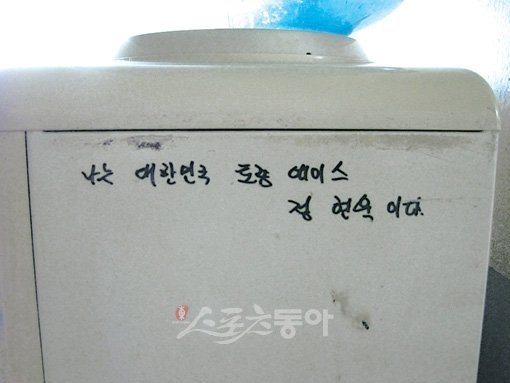 나는 대한민국 토종 에이스
정현욱이다.
스포츠동아